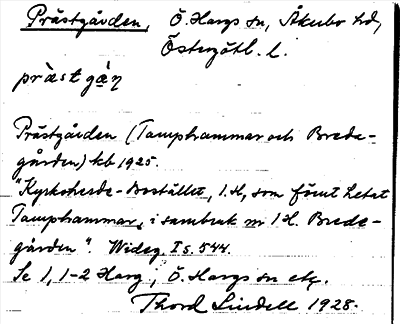 Prästgården, Ö. Hargs sn, Åkerbo hd,
Östergötl. l.
prästgån
Prästgården (Tamphammar och Brede-
gården) kb 1925.
"Kyrkoherde-Bostället, 1. H, som förut hetat
Tamphammar, i sambruk m 1 H. Brede-
gården". Wideg. I s. 544.
Se 1, 1-2 Harg, Ö. Hargs sn etc.
Thord Lindell 1928.